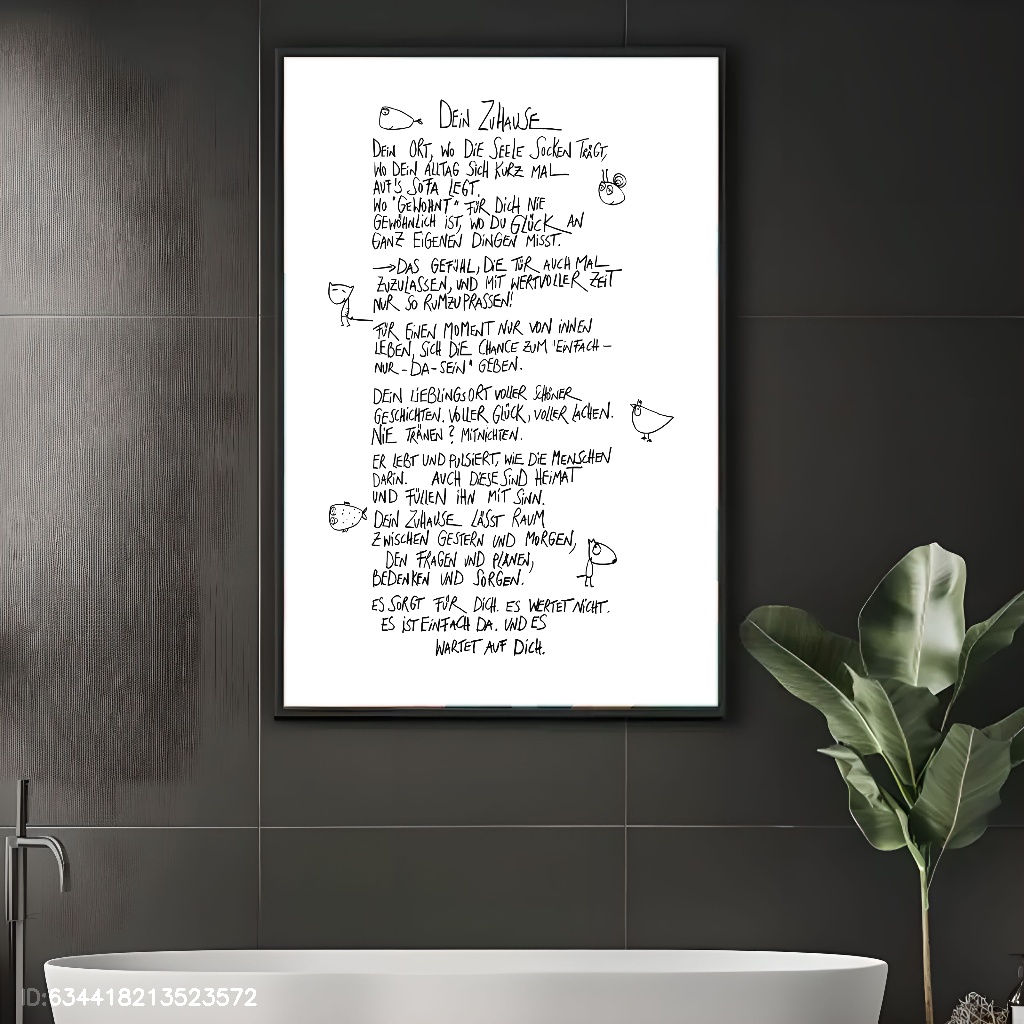 DEIN ZUHAUSE
DEIN ORT, WO DIE SEELE SOCKEN TRÄGT,
WO DEIN ALLTAG SICH KURZ MAL
AUF'S SOFA LEGT.
WO "GEWOHNT" FÜR DICH NIE
GEWÖHNLICH IST, WO DU GLÜCK AN
GANZ EIGENEN DINGEN MISST.
→DAS GEFÜHL, DIE TÜR AUCH MAL
ZUZULASSEN, UND MIT WERTVOLLER ZEIT
NUR SO RUMZUPRASSEN!
FÜR EINEN MOMENT NUR VON INNEN
LEBEN, SICH DIE CHANCE ZUM "EINFACH-
NUR-DA-SEIN" GEBEN.
DEIN LIEBLINGSORT VOLLER SCHÖNER
GESCHICHTEN. VOLLER GLÜCK, VOLLER LACHEN.
NIE TRÄNEN? MITNICHTEN.
ER LEBT UND PULSIERT, WIE DIE MENSCHEN
DARIN. AUCH DIESE SIND HEIMAT
UND FÜLLEN IHN MIT SINN.
DEIN ZUHAUSE LÄSST RAUM
ZWISCHEN GESTERN UND MORGEN,
DEN FRAGEN UND PLÄNEN,
BEDENKEN UND SORGEN.
ES SORGT FÜR DICH. ES WERTET NICHT.
ES IST EINFACH DA. UND ES
WARTET AUF DICH.
ID:634418213523572